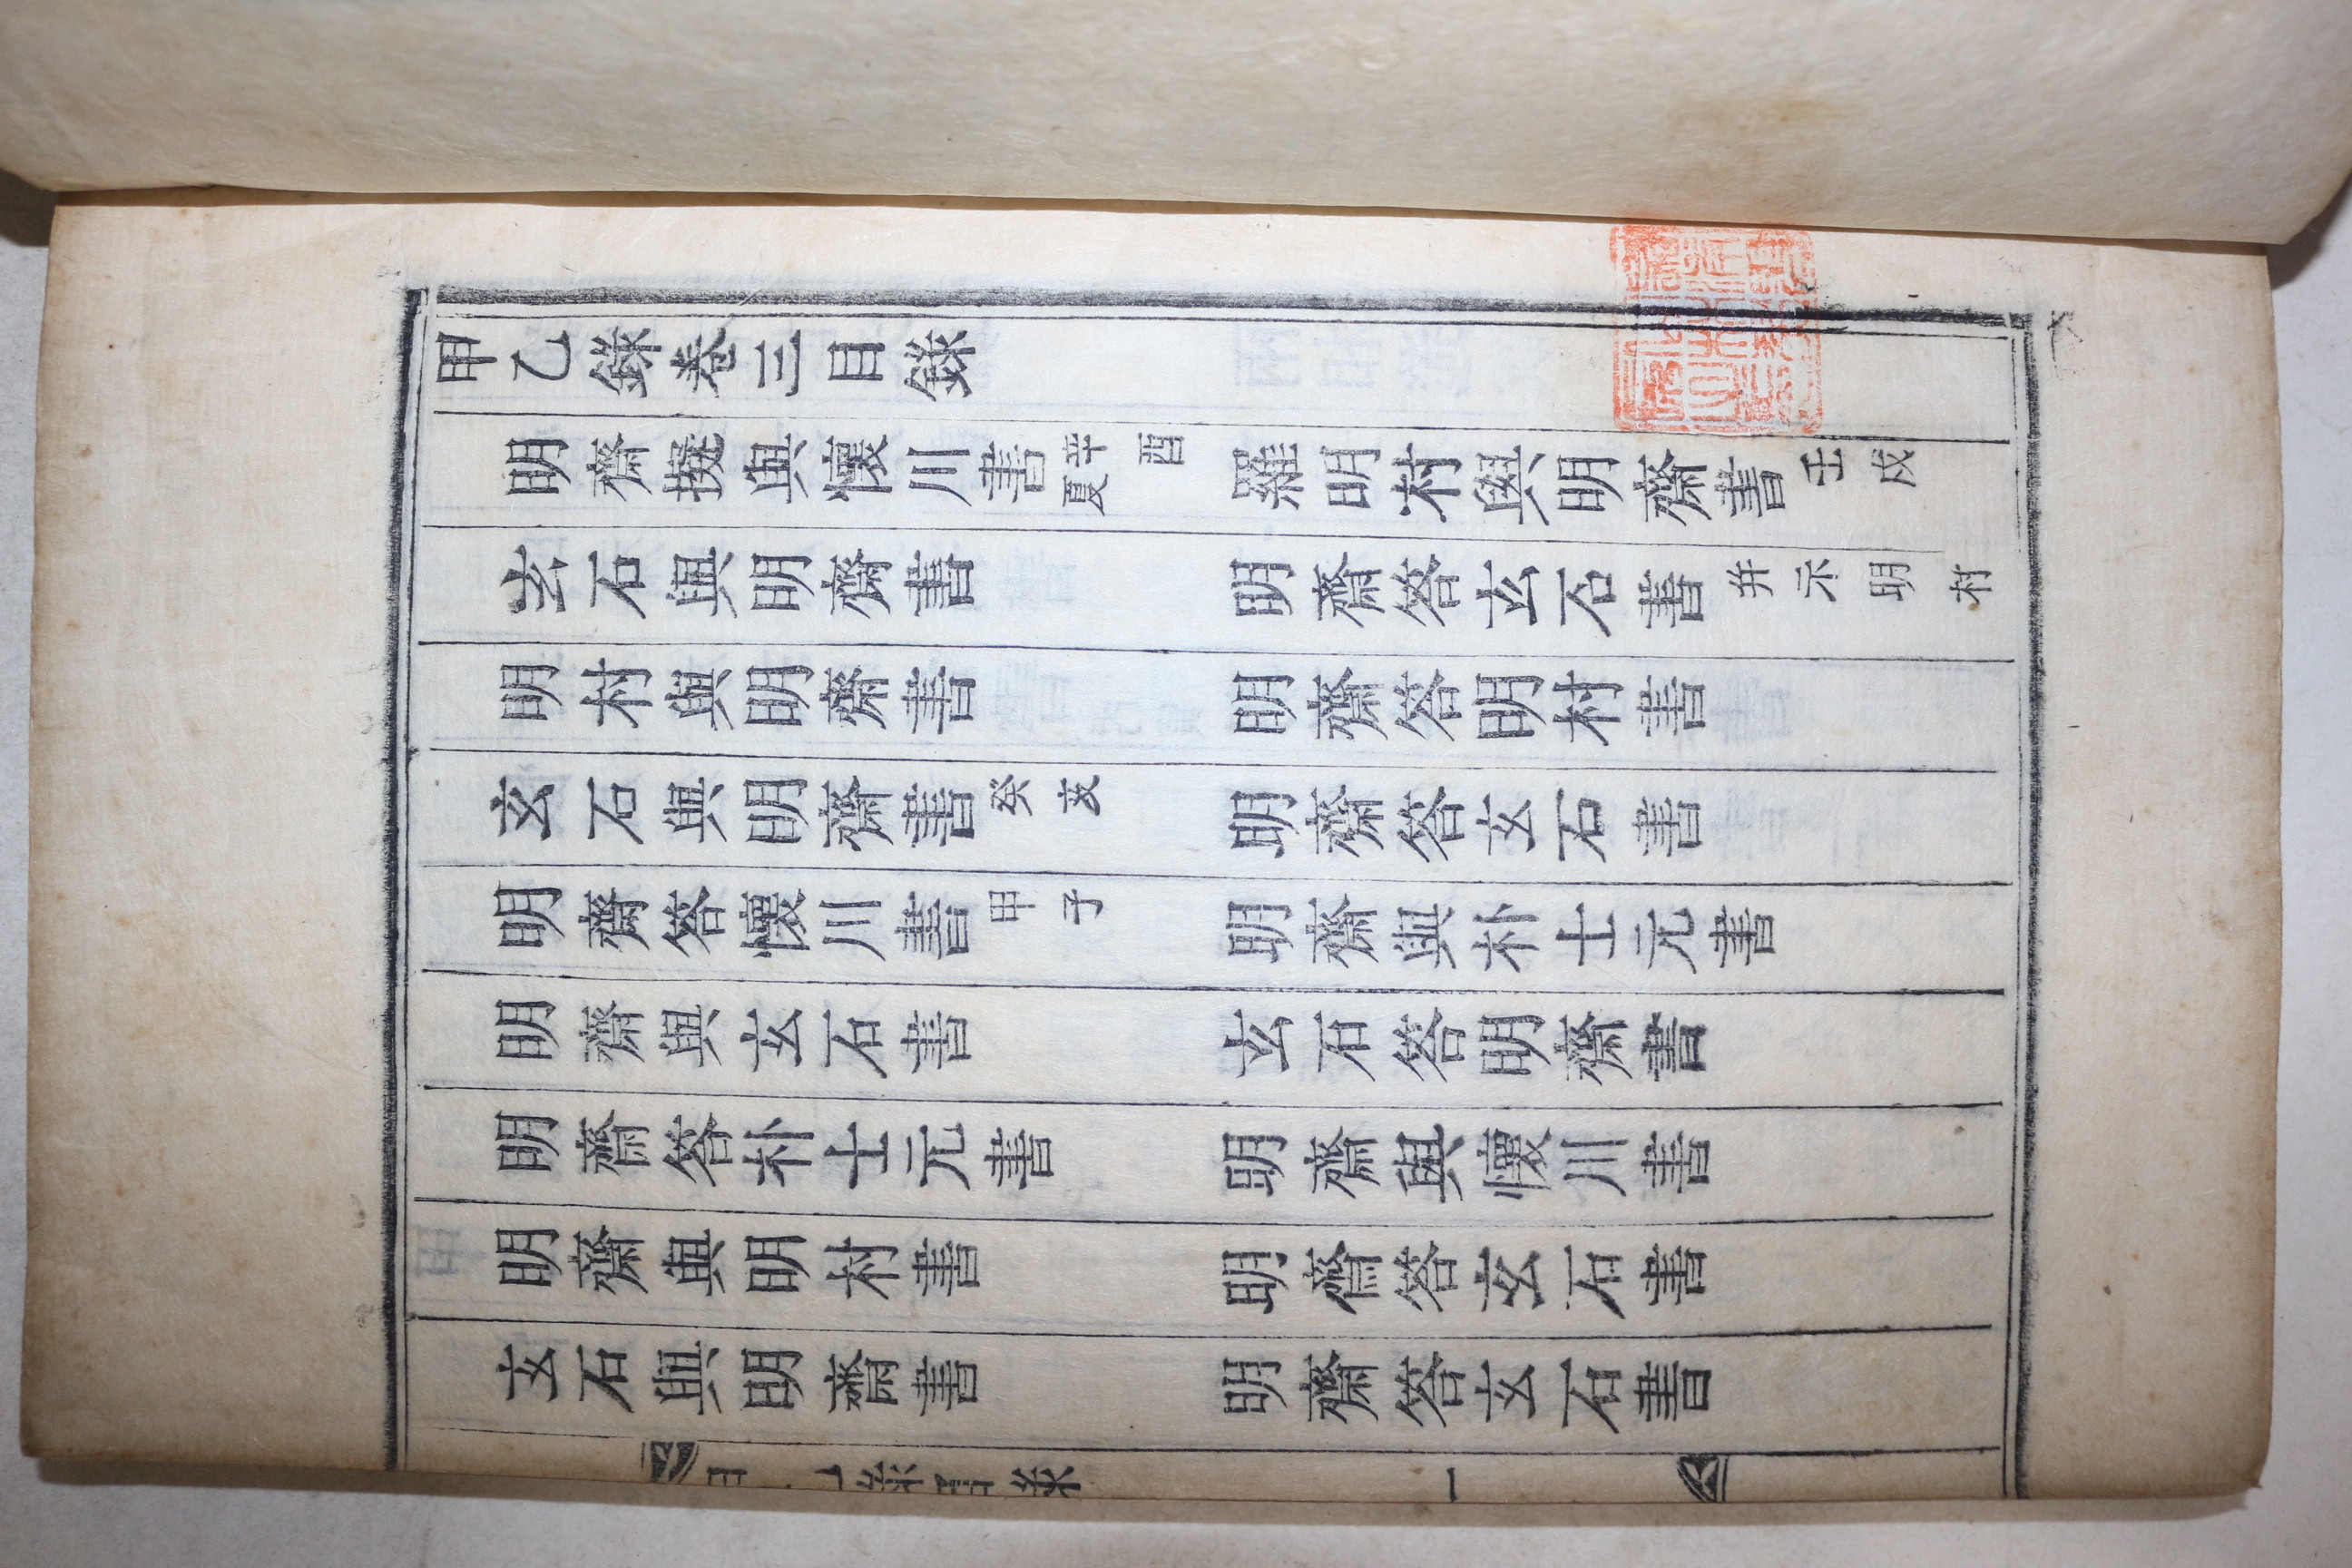 甲乙錄卷三目錄
明齋擬與懷川書 辛酉夏 羅明村與明齋書 壬戌
玄石與明齋書 明齋答玄石書 并示明村
明村與明齋書 明齋答明村書
玄石與明齋書 癸亥 明齋答玄石書
明齋答懷川書 甲子 明齋與朴士元書
明齋與玄石書 玄石答明齋書
明齋答朴士元書 明齋與懷川書
明齋與明村書 明齋答玄石書
玄石與明齋書 明齋答玄石書
一